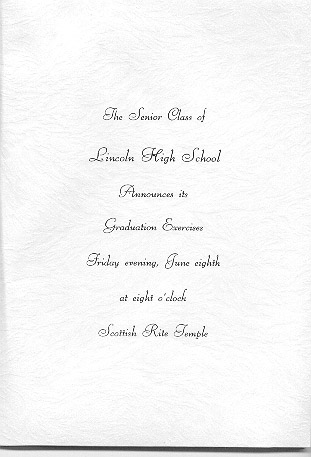 The Senior Class of
Lincoln High School
Announces its
Graduation Exercises
Friday evening, June eighth
at eight o'clock
Scottish Rite Temple